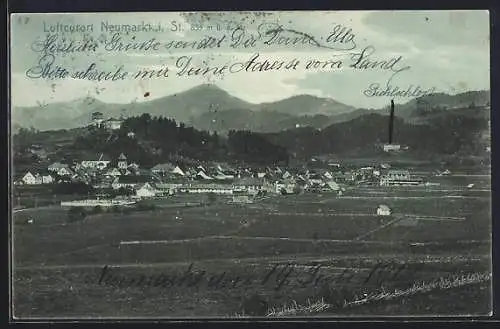 Luftcurort Neumarkt i. St. 839 m ü. d. M.
Herzliche Grüsse sendet Dir Deine Ella
Bitte schreibe mir Deine Adresse vom Land
Neumarkt den 17. Juli